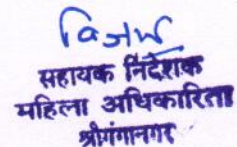 सहायक निदेशक
महिला अधिकारिता
श्रीगंगानगर